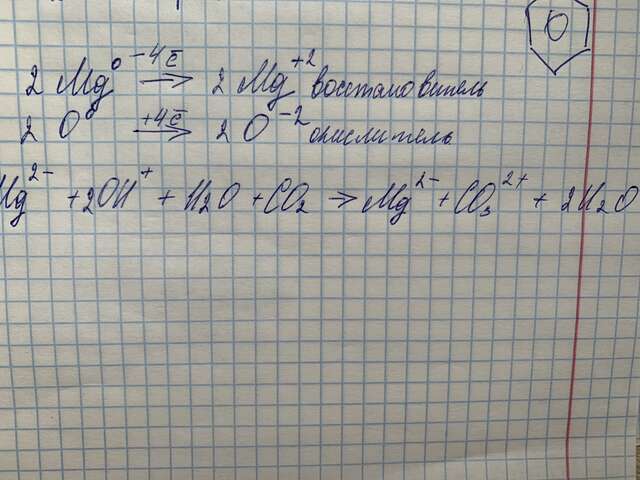 2 Mg⁰ −4ē → 2 Mg⁺² восстановитель
2 O⁰ +4ē → 2 O⁻² окислитель
Mg²⁻ + 2OH⁺ + H2O + CO2 → Mg²⁻ + CO₃²⁺ + 2H2O